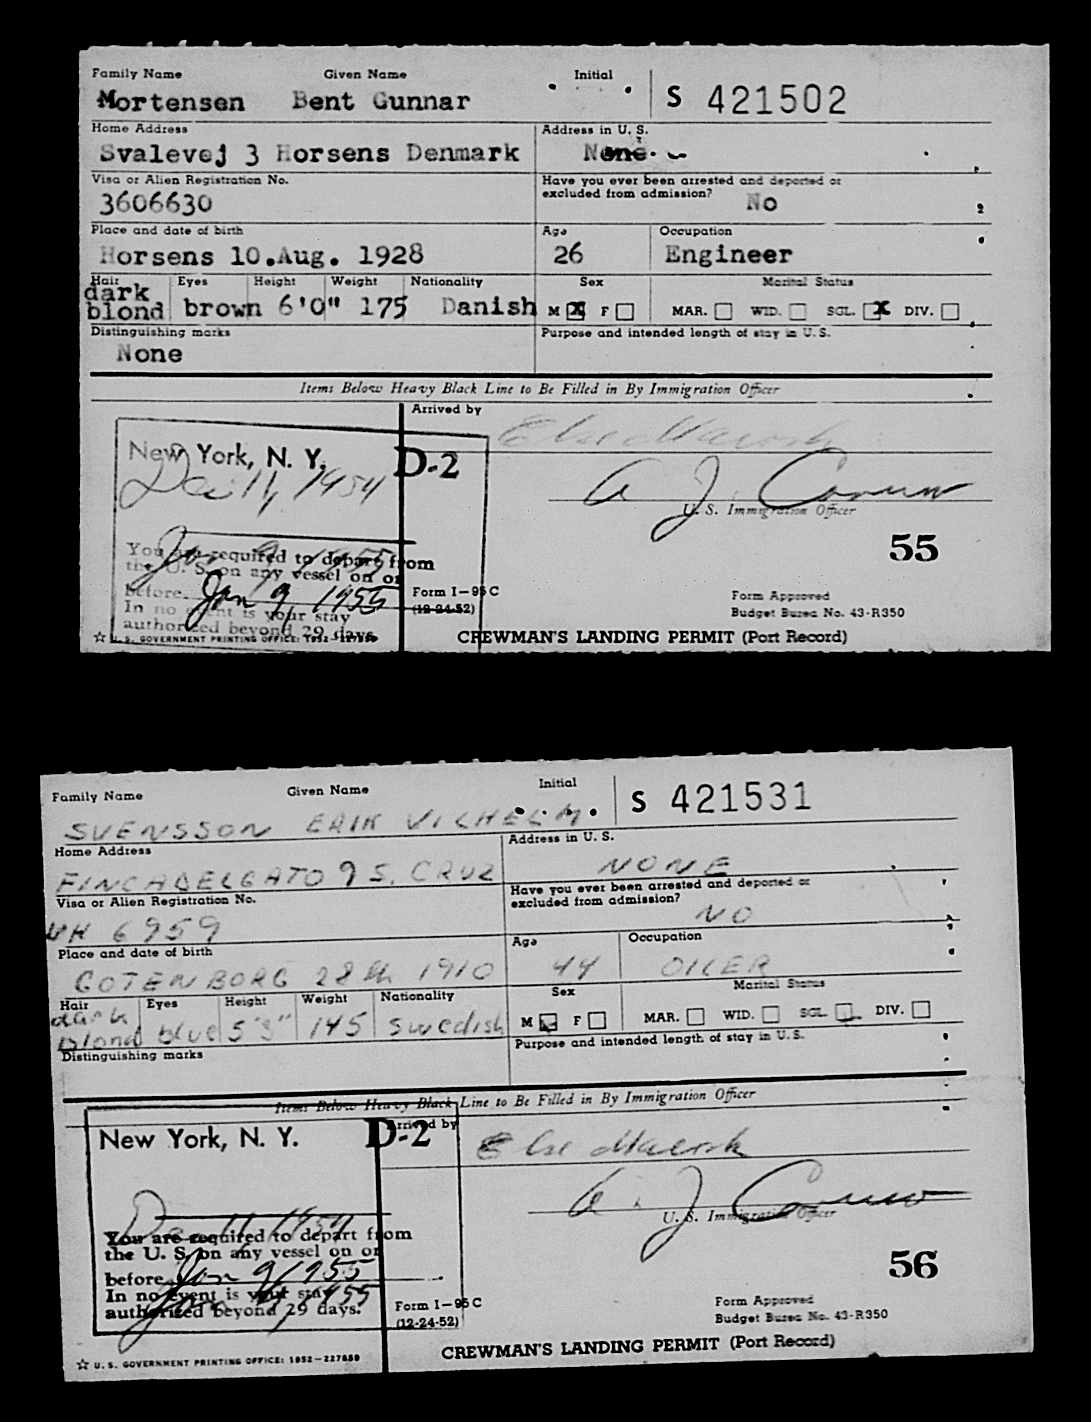 Family Name Given Name Initial
Mortensen Bent Gunnar S 421502
Home Address Address in U. S.
Svalevej 3 Horsens Denmark None
Visa or Alien Registration No. Have you ever been arrested and deported or
excluded from admission?
3606630 No
Place and date of birth Age Occupation
Horsens 10.Aug. 1928 26 Engineer
Hair Eyes Height Weight Nationality Sex Marital Status
dark
blond brown 6'0" 175 Danish M X F MAR. WID. SGL. X DIV.
Distinguishing marks Purpose and intended length of stay in U.S.
None
Items Below Heavy Black Line to Be Filled in By Immigration Officer
Arrived by
Else Maersk
New York, N. Y. D-2
Dec 11, 1954
A J
U. S. Immigration Officer
55
You are required to depart from
the U. S. on any vessel on or
before Jan 9, 1955
In no event is your stay
authorized beyond 29 days.
Form I-95C
(12-24-52)
Form Approved
Budget Bureau No. 43-R350
☆ U. S. GOVERNMENT PRINTING OFFICE: 1952-227850
CREWMAN'S LANDING PERMIT (Port Record)
Family Name Given Name Initial
SVENSSON ERIK VILHELM S 421531
Home Address Address in U. S.
FINCADELGATO 9 S. CRUZ NONE
Visa or Alien Registration No. Have you ever been arrested and deported or
excluded from admission?
6959 NO
Place and date of birth Age Occupation
GOTENBORG 28th 1910 44 OILER
Hair Eyes Height Weight Nationality Sex Marital Status
dark
blond blue 5'8" 145 swedish M F MAR. WID. SGL. DIV.
Distinguishing marks Purpose and intended length of stay in U.S.
Items Below Heavy Black Line to Be Filled in By Immigration Officer
Arrived by
Else Maersk
New York, N. Y. D-2
Dec 11 1954
A. J
U. S. Immigration Officer
56
You are required to depart from
the U. S. on any vessel on or
before Jan 9, 1955
In no event is your stay
authorized beyond 29 days.
Form I-95C
(12-24-52)
Form Approved
Budget Bureau No. 43-R350
☆ U. S. GOVERNMENT PRINTING OFFICE: 1952-227850
CREWMAN'S LANDING PERMIT (Port Record)